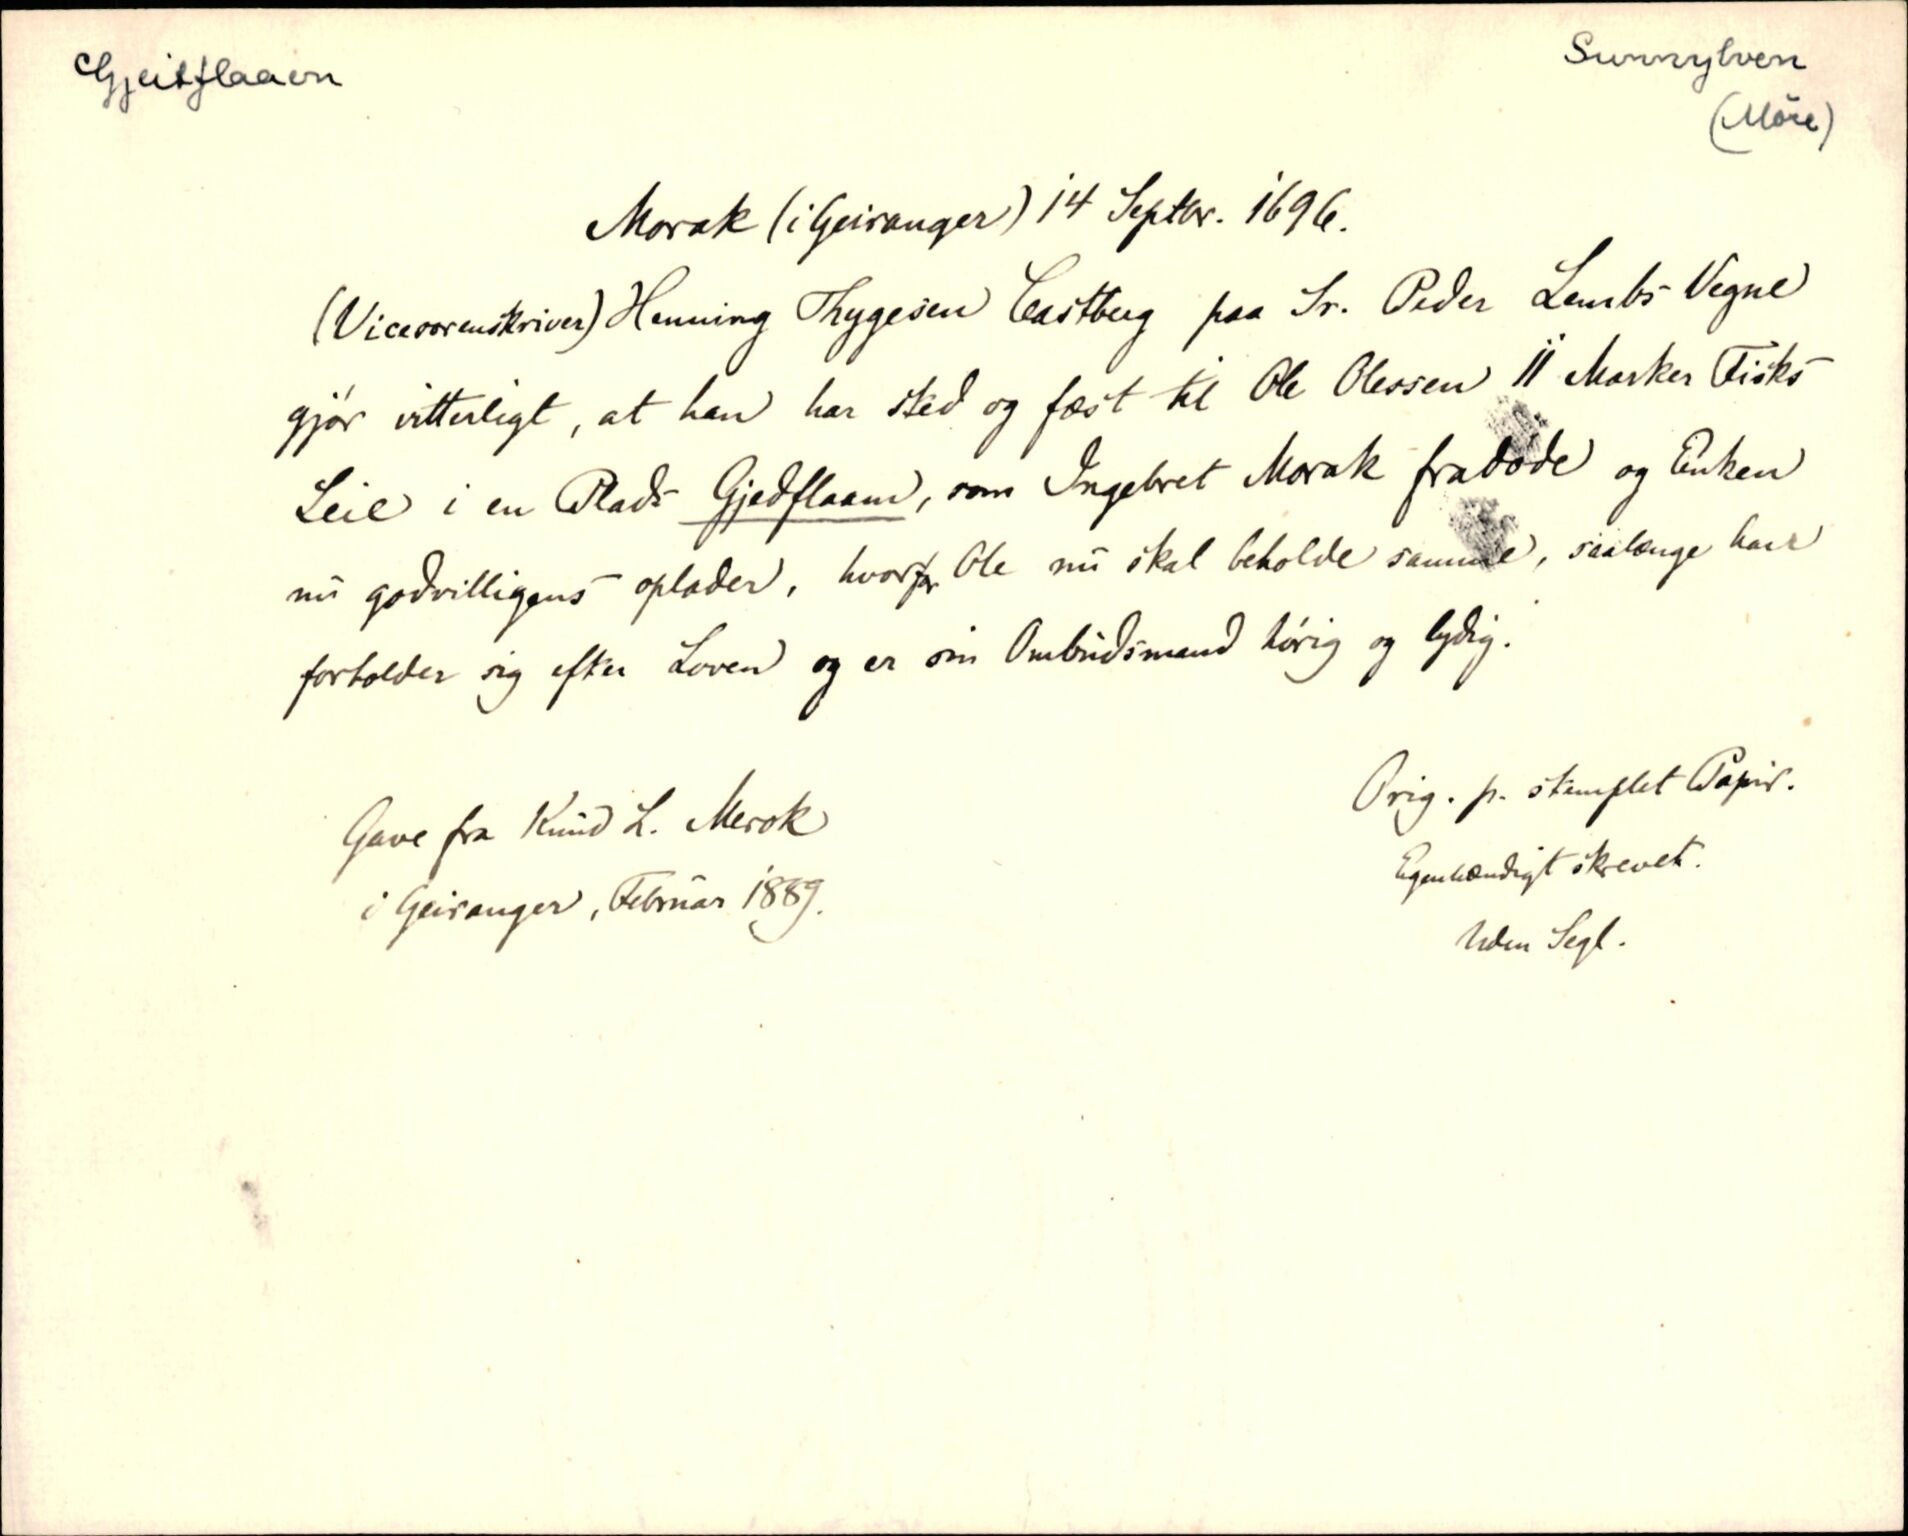 Gjeitflaaen
Sunnylven
(Möre)
Morak (i Geiranger) 14 Septbr. 1696.
(Vicesorenskriver) Henning Thygesen Castberg paa Sr. Peder Lembs Vegne
gjör vitterligt, at han har sted og fæst til Ole Olessen 11 Marker Fisks
Leie i en Plads Gjedflaam, som Ingebret Morak fradøde og Enken
nu godvilligens oplader, hvorfor Ole nu skal beholde samme, saalænge han
forholder sig efter Loven og er sin Ombudsmand hörig og lydig.
Gave fra Knud L. Merok
i Geiranger, Februar 1889.
Orig. p. stemplet Papir.
Egenhændigt skrevet.
Uden Segl.